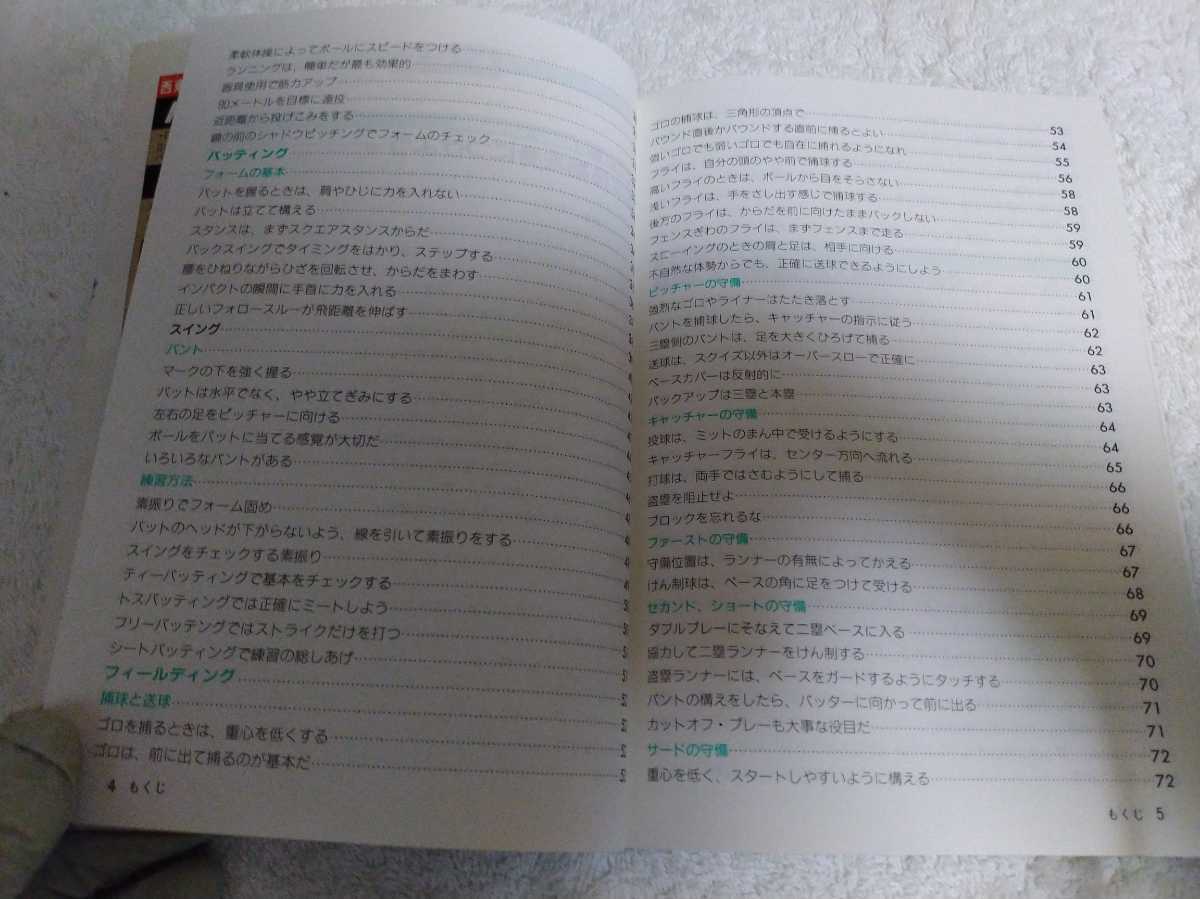 柔軟体操によってボールにスピードをつける
ランニングは、簡単だが最も効果的
器具使用で筋力アップ
90メートルを目標に遠投
近距離から投げこみをする
鏡の前のシャドウピッチングでフォームのチェック
バッティング
フォームの基本
バットを握るときは、肩やひじに力を入れない
バットは立てて構える
スタンスは、まずスクエアスタンスからだ
バックスイングでタイミングをはかり、ステップする
腰をひねりながらひざを回転させ、からだをまわす
インパクトの瞬間に手首に力を入れる
正しいフォロースルーが飛距離を伸ばす
スイング
バント
マークの下を強く握る
バットは水平でなく、やや立てぎみにする
左右の足をピッチャーに向ける
ボールをバットに当てる感覚が大切だ
いろいろなバントがある
練習方法
素振りでフォーム固め
バットのヘッドが下がらないよう、線を引いて素振りをする
スイングをチェックする素振り
ティーバッティングで基本をチェックする
トスバッティングでは正確にミートしよう
フリーバッテングではストライクだけを打つ
シートバッティングで練習の総しあげ
フィールディング
捕球と送球
ゴロを捕るときは、重心を低くする
ゴロは、前に出て捕るのが基本だ
4 もくじ
ゴロの捕球は、三角形の頂点で 53
バウンド直後かバウンドする直前に捕るとよい 54
強いゴロでも弱いゴロでも自在に捕れるようになれ 55
フライは、自分の頭のやや前で捕球する 56
高いフライのときは、ボールから目をそらさない 58
浅いフライは、手をさし出す感じで捕球する 58
後方のフライは、からだを前に向けたままバックしない 59
フェンスぎわのフライは、まずフェンスまで走る 59
スローイングのときの肩と足は、相手に向ける 60
不自然な体勢からでも、正確に送球できるようにしよう 60
ピッチャーの守備 61
強烈なゴロやライナーはたたき落とす 61
バントを捕球したら、キャッチャーの指示に従う 62
三塁側のバントは、足を大きくひろげて捕る 62
送球は、スクイズ以外はオーバースローで正確に 63
ベースカバーは反射的に 63
バックアップは三塁と本塁 63
キャッチャーの守備 64
投球は、ミットのまん中で受けるようにする 64
キャッチャーフライは、センター方向へ流れる 65
打球は、両手ではさむようにして捕る 66
盗塁を阻止せよ 66
ブロックを忘れるな 66
ファーストの守備 67
守備位置は、ランナーの有無によってかえる 67
けん制球は、ベースの角に足をつけて受ける 68
セカンド、ショートの守備 69
ダブルプレーにそなえて二塁ベースに入る 69
協力して二塁ランナーをけん制する 70
盗塁ランナーには、ベースをガードするようにタッチする 70
バントの構えをしたら、バッターに向かって前に出る 71
カットオフ・プレーも大事な役目だ 71
サードの守備 72
重心を低く、スタートしやすいように構える 72
もくじ 5